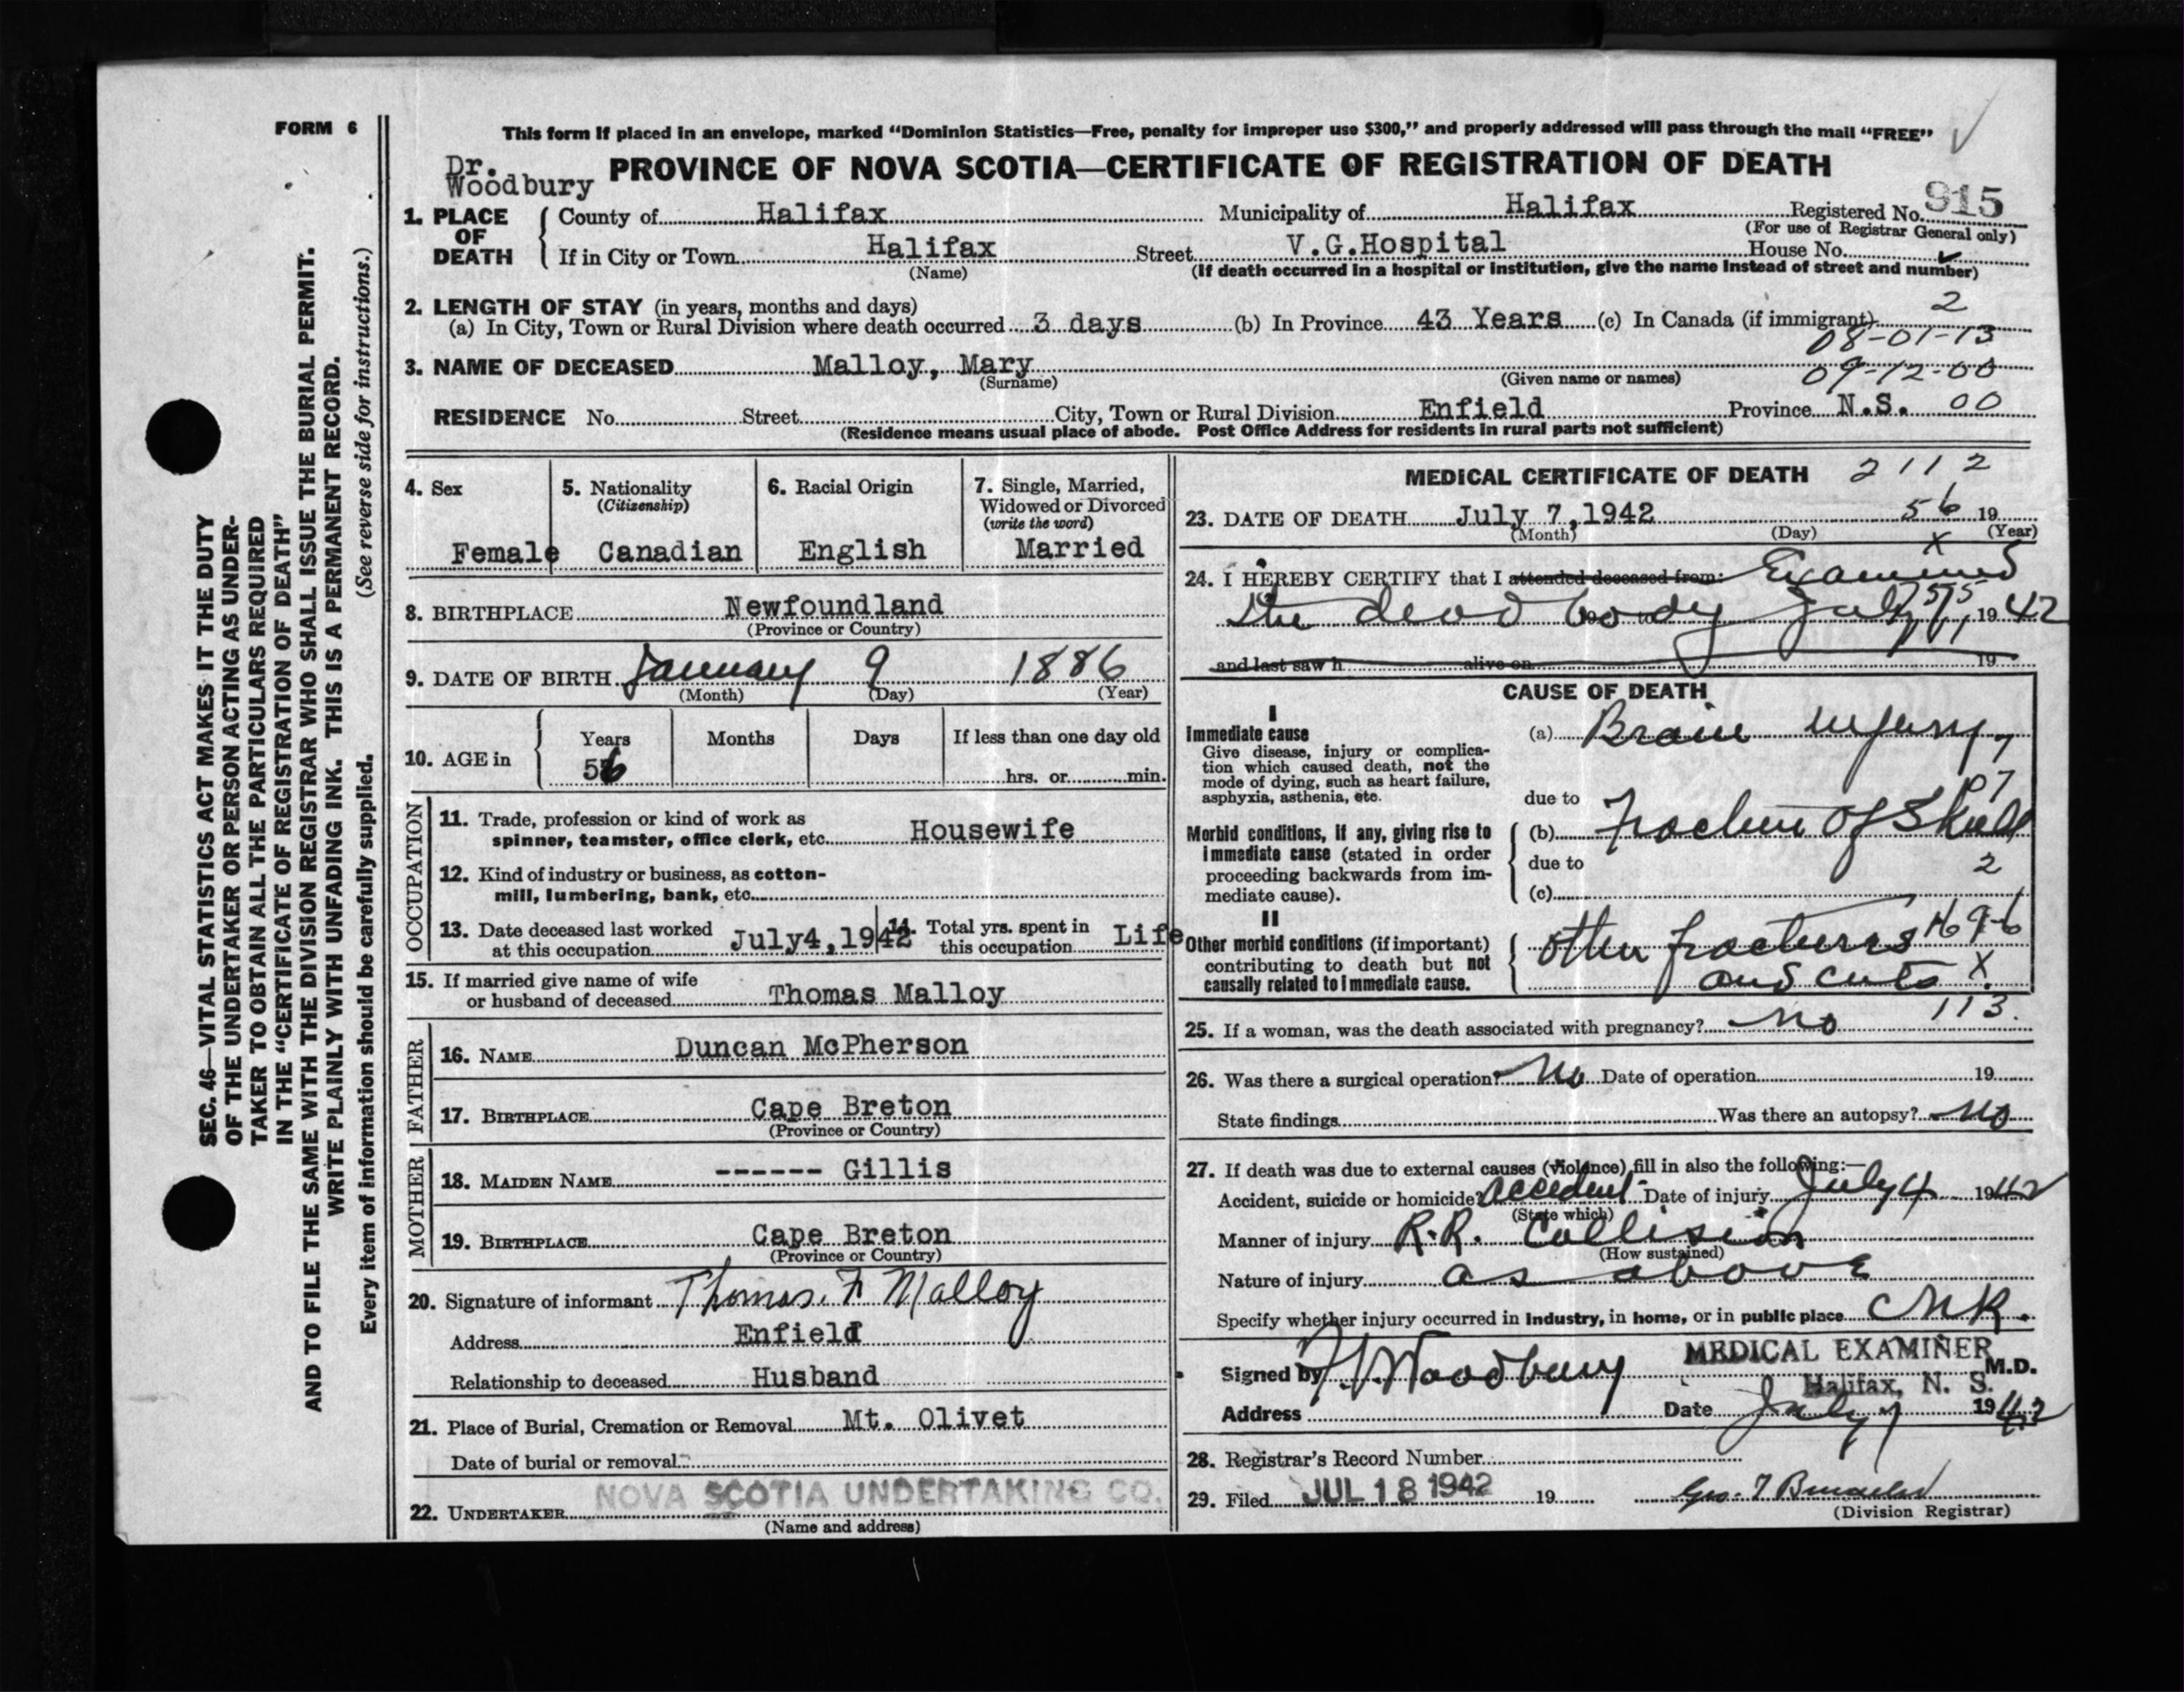 FORM 6
This form if placed in an envelope, marked “Dominion Statistics—Free, penalty for improper use $300,” and properly addressed will pass through the mail “FREE”
Dr. Woodbury
PROVINCE OF NOVA SCOTIA—CERTIFICATE OF REGISTRATION OF DEATH
1. PLACE OF DEATH
County of Halifax Municipality of Halifax Registered No. 915
(For use of Registrar General only)
If in City or Town Halifax Street V.G.Hospital House No.
(Name) (If death occurred in a hospital or institution, give the name instead of street and number)
2. LENGTH OF STAY (in years, months and days)
2
(a) In City, Town or Rural Division where death occurred 3 days (b) In Province 43 Years (c) In Canada (if immigrant)
08-01-13
3. NAME OF DECEASED Malloy, Mary
(Surname) (Given name or names) 09-12-00
RESIDENCE No. Street City, Town or Rural Division Enfield Province N.S. 00
(Residence means usual place of abode. Post Office Address for residents in rural parts not sufficient)
4. Sex
Female
5. Nationality
(Citizenship)
Canadian
6. Racial Origin
English
7. Single, Married,
Widowed or Divorced
(write the word)
Married
8. BIRTHPLACE Newfoundland
(Province or Country)
9. DATE OF BIRTH January 9 1886
(Month) (Day) (Year)
10. AGE in
Years Months Days If less than one day old
56 hrs. or min.
OCCUPATION
11. Trade, profession or kind of work as
spinner, teamster, office clerk, etc. Housewife
12. Kind of industry or business, as cotton-
mill, lumbering, bank, etc.
13. Date deceased last worked
at this occupation July4,1942
14. Total yrs. spent in
this occupation Life
15. If married give name of wife
or husband of deceased Thomas Malloy
FATHER
16. NAME Duncan McPherson
17. BIRTHPLACE Cape Breton
(Province or Country)
MOTHER
18. MAIDEN NAME ------ Gillis
19. BIRTHPLACE Cape Breton
(Province or Country)
20. Signature of informant Thomas. F Malloy
Address Enfield
Relationship to deceased Husband
21. Place of Burial, Cremation or Removal Mt. Olivet
Date of burial or removal
NOVA SCOTIA UNDERTAKING CO.
22. UNDERTAKER
(Name and address)
MEDICAL CERTIFICATE OF DEATH 2112
23. DATE OF DEATH July 7,1942 56 19
(Month) (Day) (Year)
x
24. I HEREBY CERTIFY that I attended deceased from: Examined
the dead body July 1942
and last saw h alive on 19
CAUSE OF DEATH
I
Immediate cause
Give disease, injury or complica-
tion which caused death, not the
mode of dying, such as heart failure,
asphyxia, asthenia, etc.
(a) Brain injury
due to
Morbid conditions, if any, giving rise to
immediate cause (stated in order
proceeding backwards from im-
mediate cause).
(b) Fracture of Skull
due to 2
(c)
II
Other morbid conditions (if important)
contributing to death but not
causally related to immediate cause.
Other fractures
and cuts X
113.
25. If a woman, was the death associated with pregnancy? No
26. Was there a surgical operation? No Date of operation 19
State findings Was there an autopsy? No
27. If death was due to external causes (violence) fill in also the following:—
Accident, suicide or homicide? Accident Date of injury July 4 1942
(State which)
Manner of injury R.R. Collision
(How sustained)
Nature of injury as above
Specify whether injury occurred in industry, in home, or in public place CNR.
MEDICAL EXAMINER
Signed by Woodbury M.D.
Halifax, N. S.
Address Date July 7 1942
28. Registrar’s Record Number
29. Filed JUL 18 1942 19 Geo.
(Division Registrar)
SEC. 46—VITAL STATISTICS ACT MAKES IT THE DUTY
OF THE UNDERTAKER OR PERSON ACTING AS UNDER-
TAKER TO OBTAIN ALL THE PARTICULARS REQUIRED
IN THE “CERTIFICATE OF REGISTRATION OF DEATH”
AND TO FILE THE SAME WITH THE DIVISION REGISTRAR WHO SHALL ISSUE THE BURIAL PERMIT.
WRITE PLAINLY WITH UNFADING INK. THIS IS A PERMANENT RECORD.
(See reverse side for instructions.)
Every item of information should be carefully supplied.